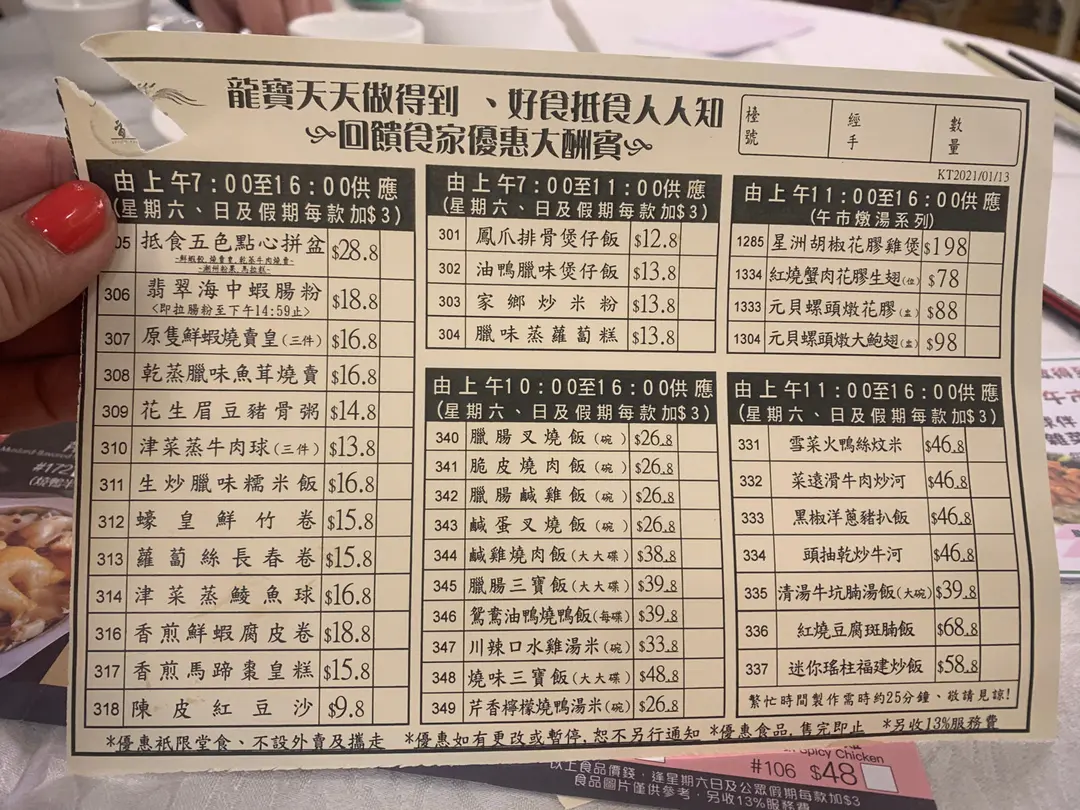 龍寶天天做得到、好食抵食人人知
回饋食家優惠大酬賓
檯號
經手
數量
KT2021/01/13
由上午7:00至16:00供應
(星期六、日及假期每款加$3)
05 抵食五色點心拼盆 $28.8
~鮮蝦餃,燒賣皇,乾蒸牛肉燒賣~
~潮州粉果,馬拉糕~
306 翡翠海中蝦腸粉 $18.8
<即拉腸粉至下午14:59止>
307 原隻鮮蝦燒賣皇(三件) $16.8
308 乾蒸臘味魚茸燒賣 $16.8
309 花生眉豆豬骨粥 $14.8
310 津菜蒸牛肉球(三件) $13.8
311 生炒臘味糯米飯 $16.8
312 蠔皇鮮竹卷 $15.8
313 蘿蔔絲長春卷 $15.8
314 津菜蒸鯪魚球 $16.8
316 香煎鮮蝦腐皮卷 $18.8
317 香煎馬蹄棗皇糕 $15.8
318 陳皮紅豆沙 $9.8
由上午7:00至11:00供應
(星期六、日及假期每款加$3)
301 鳳爪排骨煲仔飯 $12.8
302 油鴨臘味煲仔飯 $13.8
303 家鄉炒米粉 $13.8
304 臘味蒸蘿蔔糕 $13.8
由上午10:00至16:00供應
(星期六、日及假期每款加$3)
340 臘腸叉燒飯(碗) $26.8
341 脆皮燒肉飯(碗) $26.8
342 臘腸鹹雞飯(碗) $26.8
343 鹹蛋叉燒飯(碗) $26.8
344 鹹雞燒肉飯(大大碟) $38.8
345 臘腸三寶飯(大大碟) $39.8
346 鴛鴦油鴨燒鴨飯(每碟) $39.8
347 川辣口水雞湯米(碗) $33.8
348 燒味三寶飯(大大碟) $48.8
349 芹香檸檬燒鴨湯米(碗) $26.8
由上午11:00至16:00供應
(午市燉湯系列)
1285 星洲胡椒花膠雞煲 $198
1334 紅燒蟹肉花膠生翅(位) $78
1333 元貝螺頭燉花膠(盅) $88
1304 元貝螺頭燉大鮑翅(盅) $98
由上午11:00至16:00供應
(星期六、日及假期每款加$3)
331 雪菜火鴨絲炆米 $46.8
332 菜遠滑牛肉炒河 $46.8
333 黑椒洋蔥豬扒飯 $46.8
334 頭抽乾炒牛河 $46.8
335 清湯牛坑腩湯飯(大碗) $39.8
336 紅燒豆腐斑腩飯 $68.8
337 迷你瑤柱福建炒飯 $58.8
繁忙時間製作需時約25分鐘、敬請見諒!
*優惠祇限堂食、不設外賣及攜走 *優惠如有更改或暫停,恕不另行通知 *優惠食品,售完即止 *另收13%服務費
#172
Spicy Chicken
#106 $48
以上食品價錢,逢星期六日及公眾假期每款加$3
食品圖片僅供參考,另收13%服務費